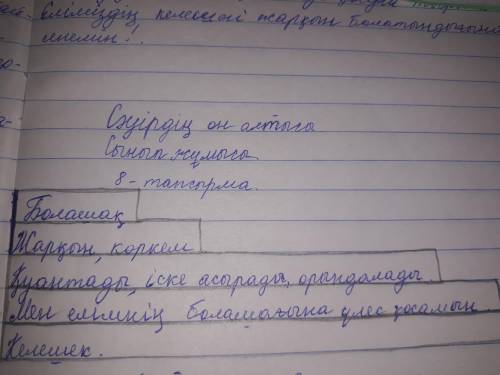 Еліміздің келешегі жарқын болатындығына
сенемін!.
Сәуірдің он алтысы
Сынып жұмысы
8-тапсырма.
Болашақ
Жарқын, көркем
Қуантады, іске асырады, орындалады.
Мен елімнің болашағына үлес қосамын.
Келешек.